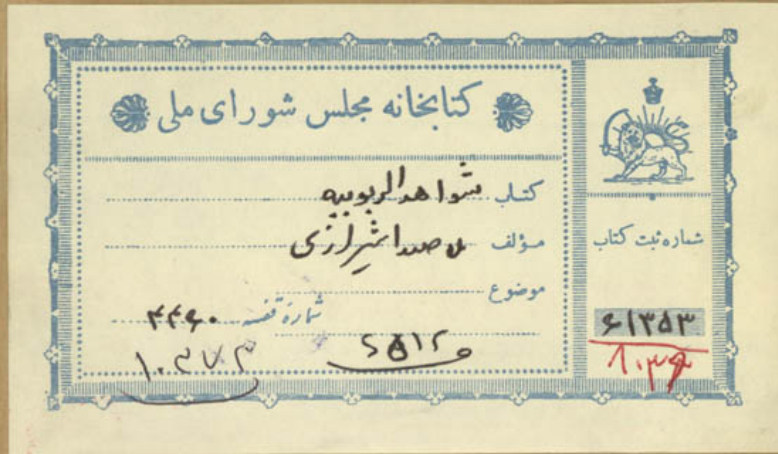 کتابخانه مجلس شورای ملی
کتاب شواهدالربوبیه
مؤلف ملا صدرا شیرازی
موضوع
شمارهٔ قفسه ۴۴۶۰
شماره ثبت کتاب
۶۱۳۵۳